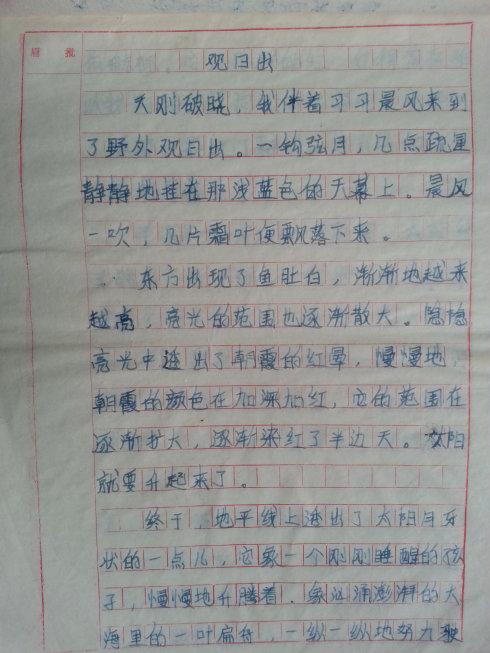 眉 批
观日出
天刚破晓，我伴着习习晨风来到
了野外观日出。一钩弦月，几点疏星
静静地挂在那浅蓝色的天幕上。晨风
一吹，几片霜叶便飘落下来。
东方出现了鱼肚白，渐渐地越来
越高，亮光的范围也逐渐散大。隐隐
亮光中透出了朝霞的红晕，慢慢地，
朝霞的颜色在加深加红，它的范围在
逐渐扩大，逐渐染红了半边天。太阳
就要升起来了。
终于，地平线上透出了太阳月牙
状的一点儿，它象一个刚刚睡醒的孩
子，慢慢地升腾着。象汹涌澎湃的大
海里的一叶扁舟，一纵一纵地努力驶